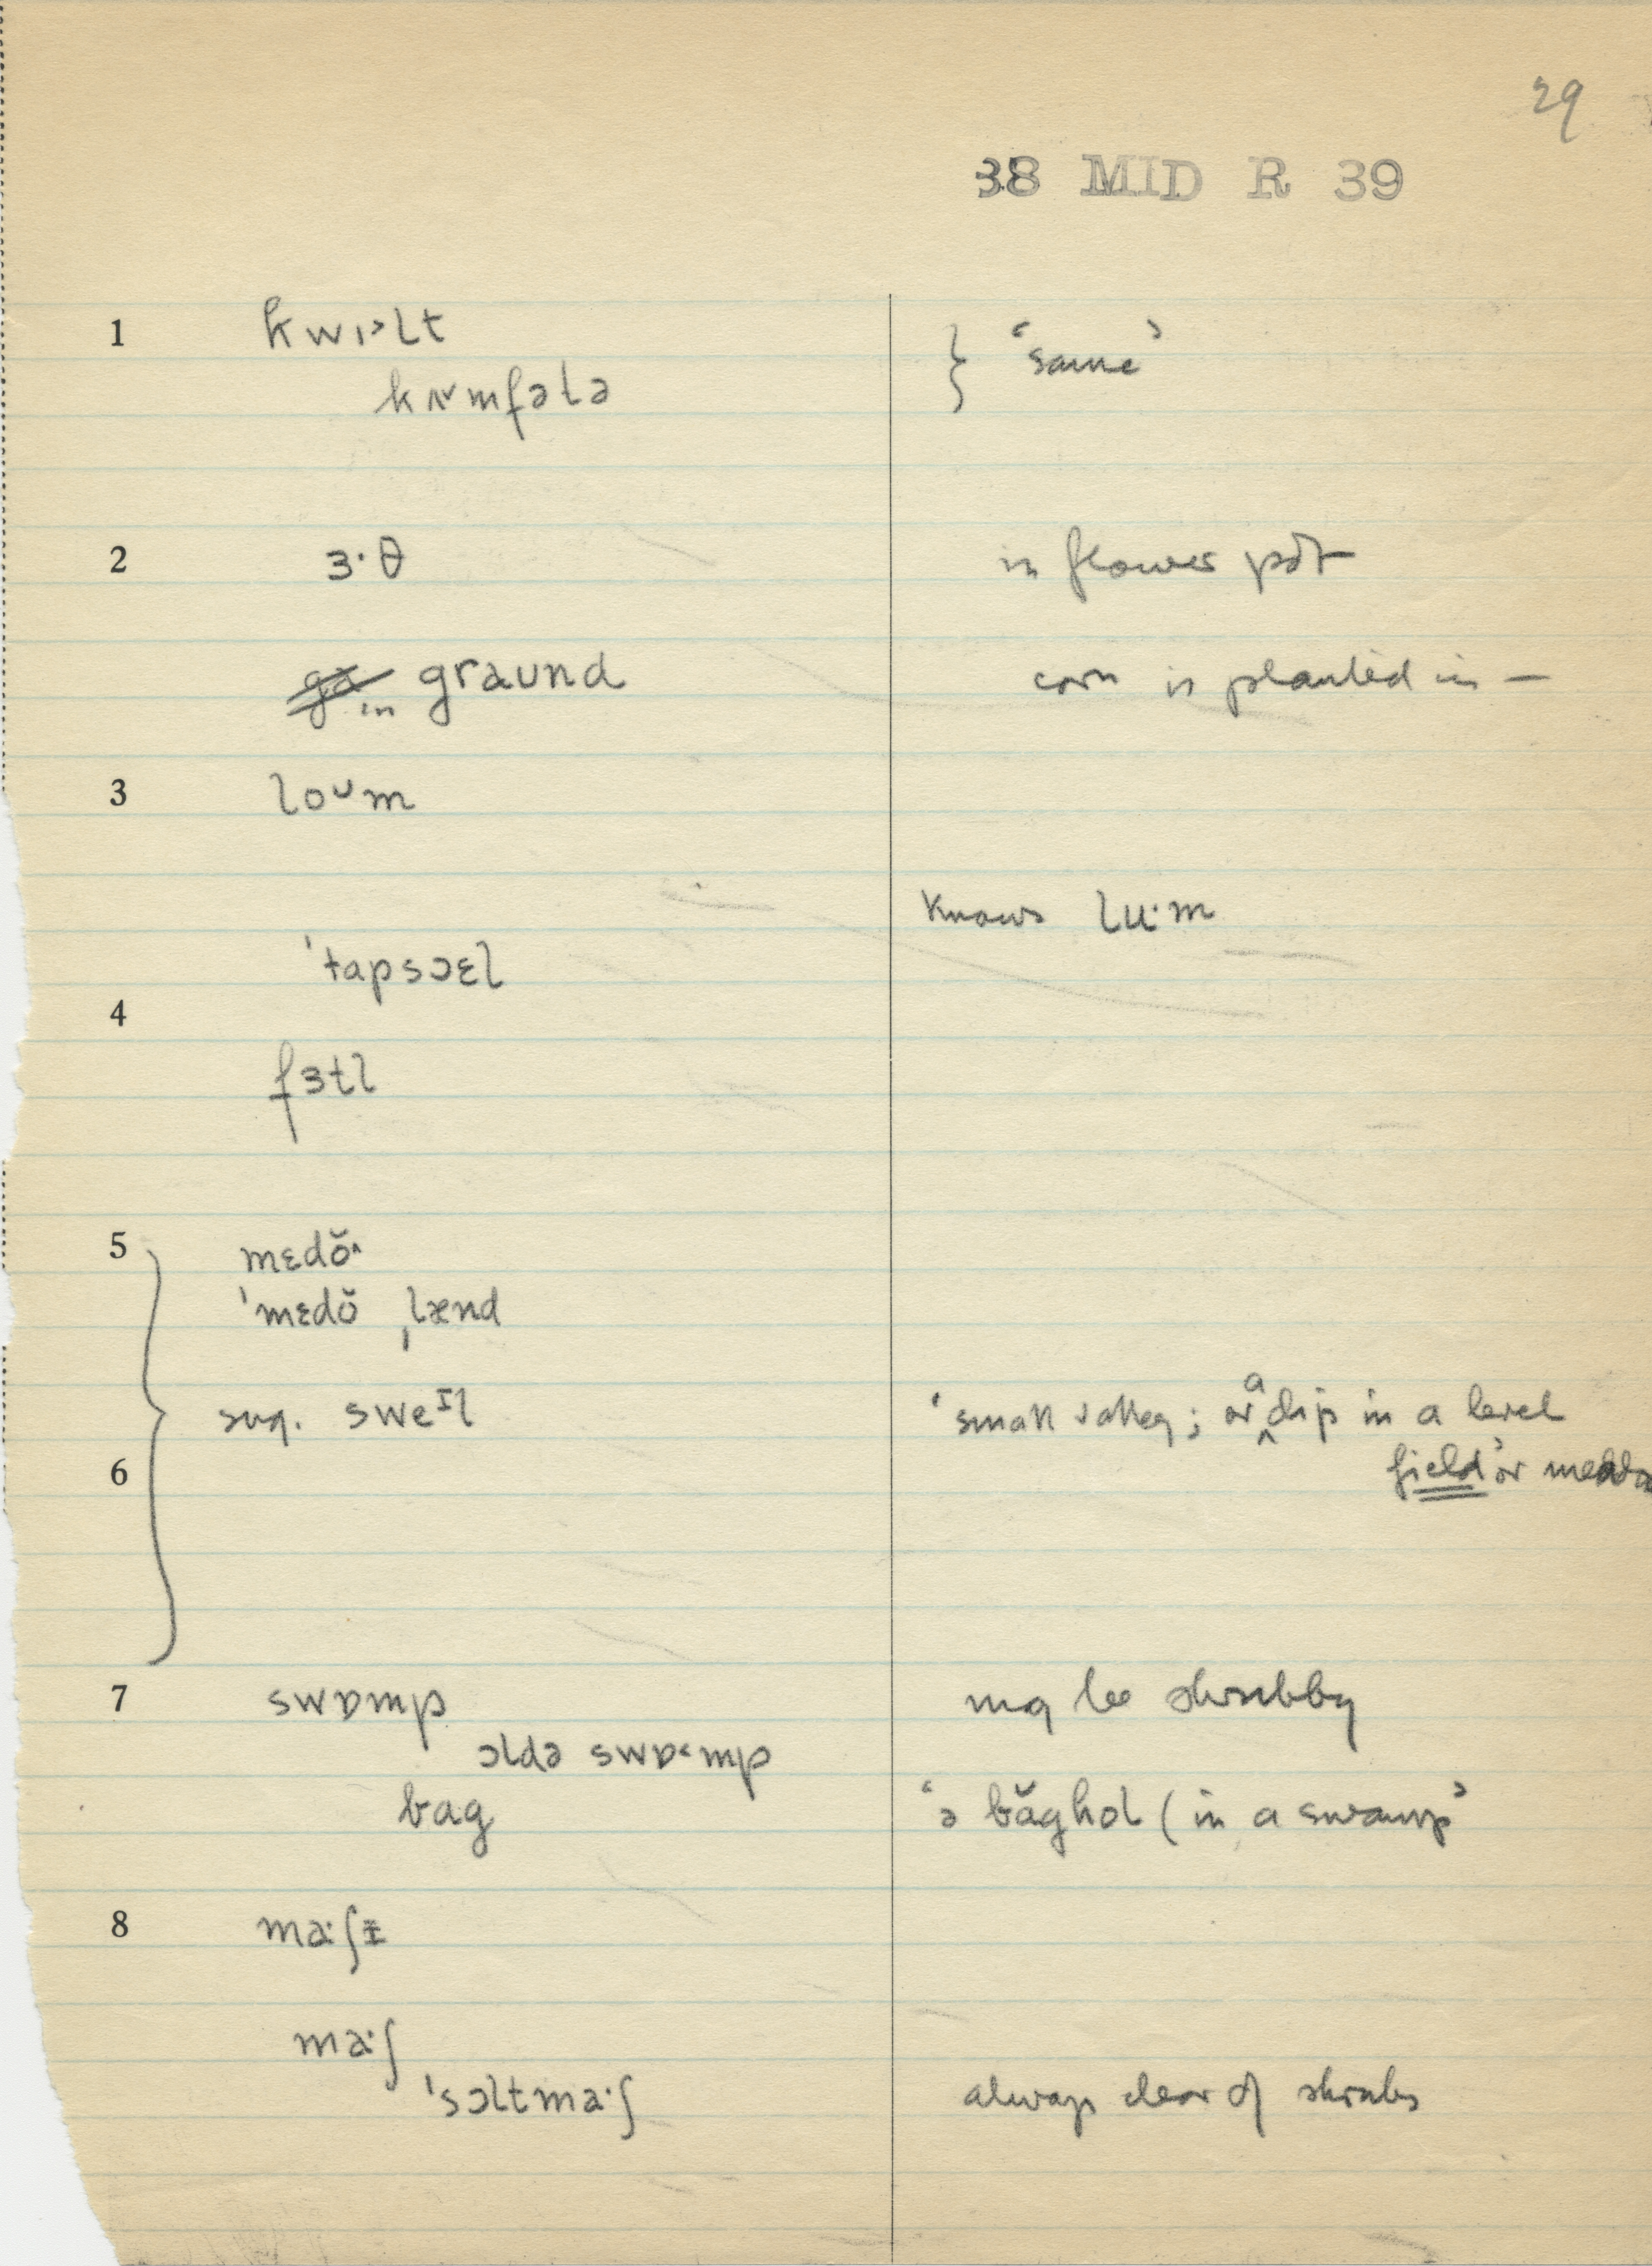 29
38 MID R 39
1 kwɪ˃lt } ‘same’
kʌ˅mfətə
2 ɜ·θ in flower pot
in graʊnd corn is planted in —
3 loᴜm
knows lu·m
ˈtapsɔɛl
4
fɜtl
5 mɛdŏ˄
ˈmɛdŏ ˌlænd
sug. sweᴵl ‘small valley; or a dip in a level
6 field’ or meado
7 swɒmp may be shrubby
ɔldə swɒ˂mp
bag ‘ə băghol (in a swamp’
8 ma·ʃɪ
ma·ʃ
ˈsɔltma·ʃ always clear of shrubs